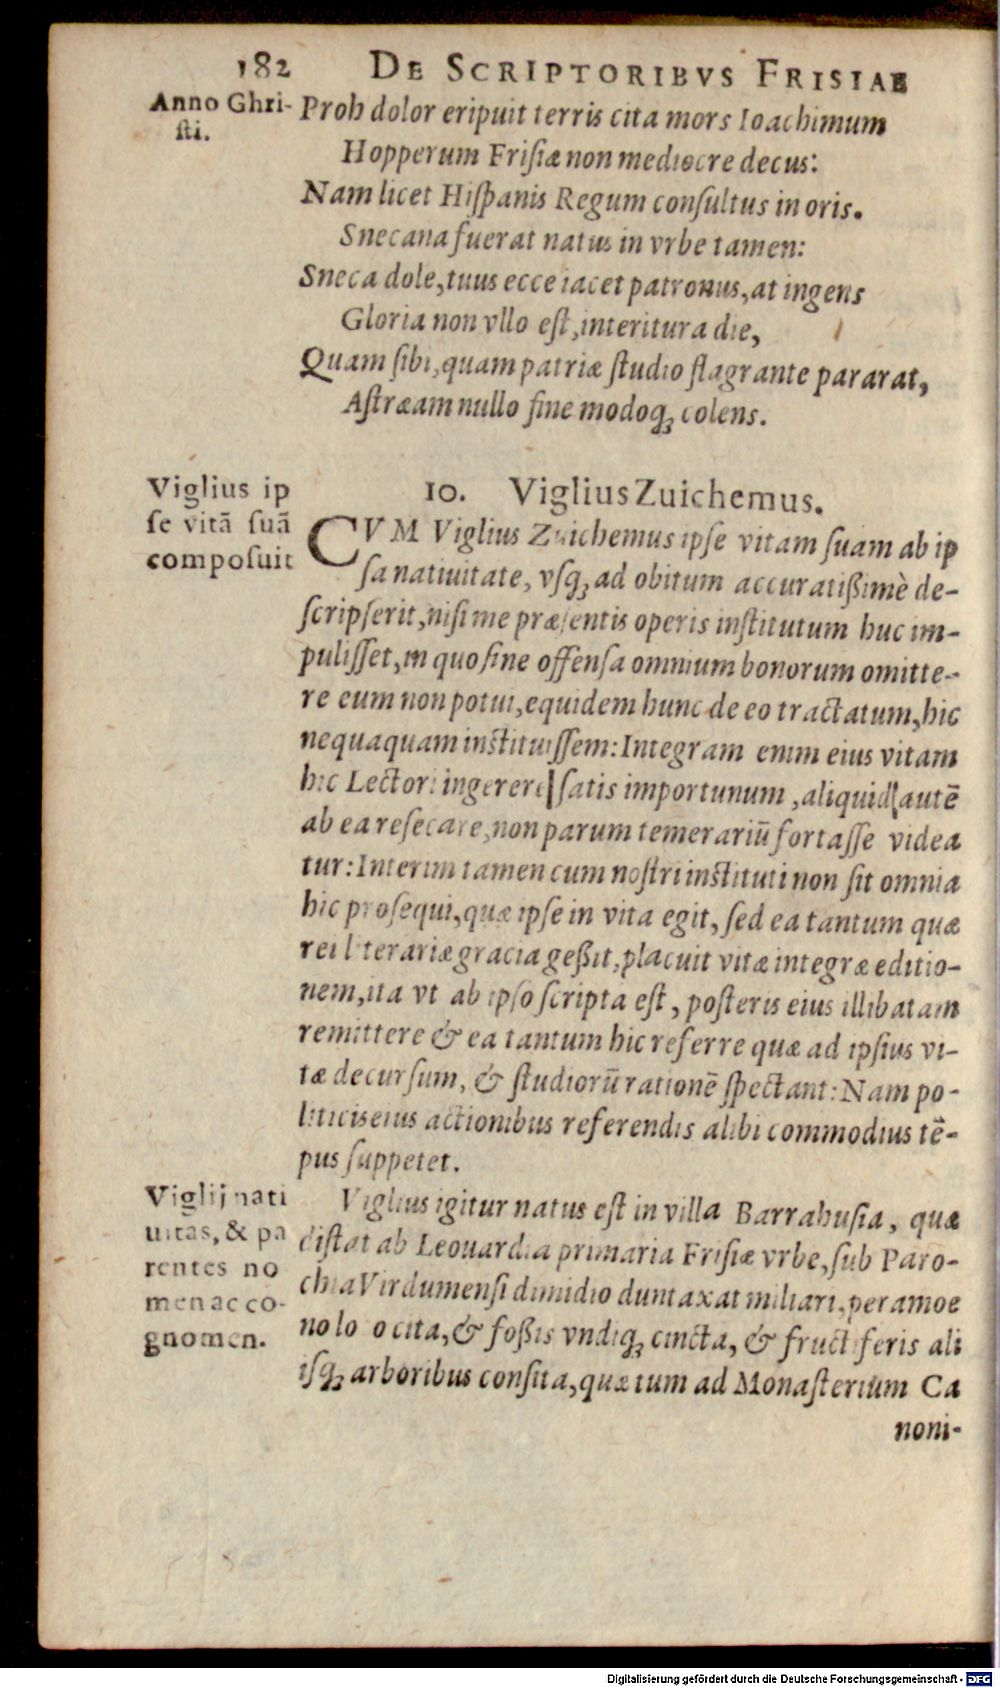 182 DE SCRIPTORIBVS FRISIAE
Anno Ghri-
sti.
Proh dolor eripuit terris cita mors Ioachimum
Hopperum Frisiæ non mediocre decus:
Nam licet Hiſpanis Regum conſultus in oris.
Snecana fuerat natus in vrbe tamen:
Sneca dole, tuus ecce iacet patronus, at ingens
Gloria non vllo eſt, interitura die,
Quam ſibi, quam patriæ ſtudio flagrante pararat,
Aſtræam nullo fine modoq́; colens.
10. Viglius Zuichemus.
Viglius ip
ſe vitã ſuã
compoſuit
CVM Viglius Zuichemus ipſe vitam ſuam ab ip
ſa natiuitate, vſq; ad obitum accuratißimè de-
ſcripſerit, niſi me præſentis operis inſtitutum huc im-
puliſſet, in quo ſine offenſa omnium bonorum omitte-
re eum non potui, equidem hunc de eo tractatum, hic
nequaquam inſtituiſſem: Integram enim eius vitam
hic Lectori ingerere ſatis importunum, aliquid autẽ
ab ea reſecare, non parum temerariũ fortaſſe videa
tur: Interim tamen cum noſtri inſtituti non ſit omnia
hic proſequi, quæ ipſe in vita egit, ſed ea tantum quæ
rei literariæ gracia geßit, placuit vitæ integræ editio-
nem, ita vt ab ipſo ſcripta eſt, poſteris eius illibatam
remittere & ea tantum hic referre quæ ad ipſius vi-
tæ decurſum, & ſtudiorũ rationẽ ſpectant: Nam po-
liticis eius actionibus referendis alibi commodius tẽ-
pus ſuppetet.
Viglij nati
uitas, & pa
rentes no
men ac co-
gnomen.
Viglius igitur natus eſt in villa Barrahuſia, quæ
diſtat ab Leouardia primaria Friſiæ vrbe, ſub Paro-
chia Virdumenſi dimidio duntaxat miliari, per amoe
no lo o cita, & foßis vndiq; cincta, & fructiferis ali
iſq; arboribus conſita, quæ tum ad Monaſterium Ca
noni-
Digitalisierung gefördert durch die Deutsche Forschungsgemeinschaft - DFG